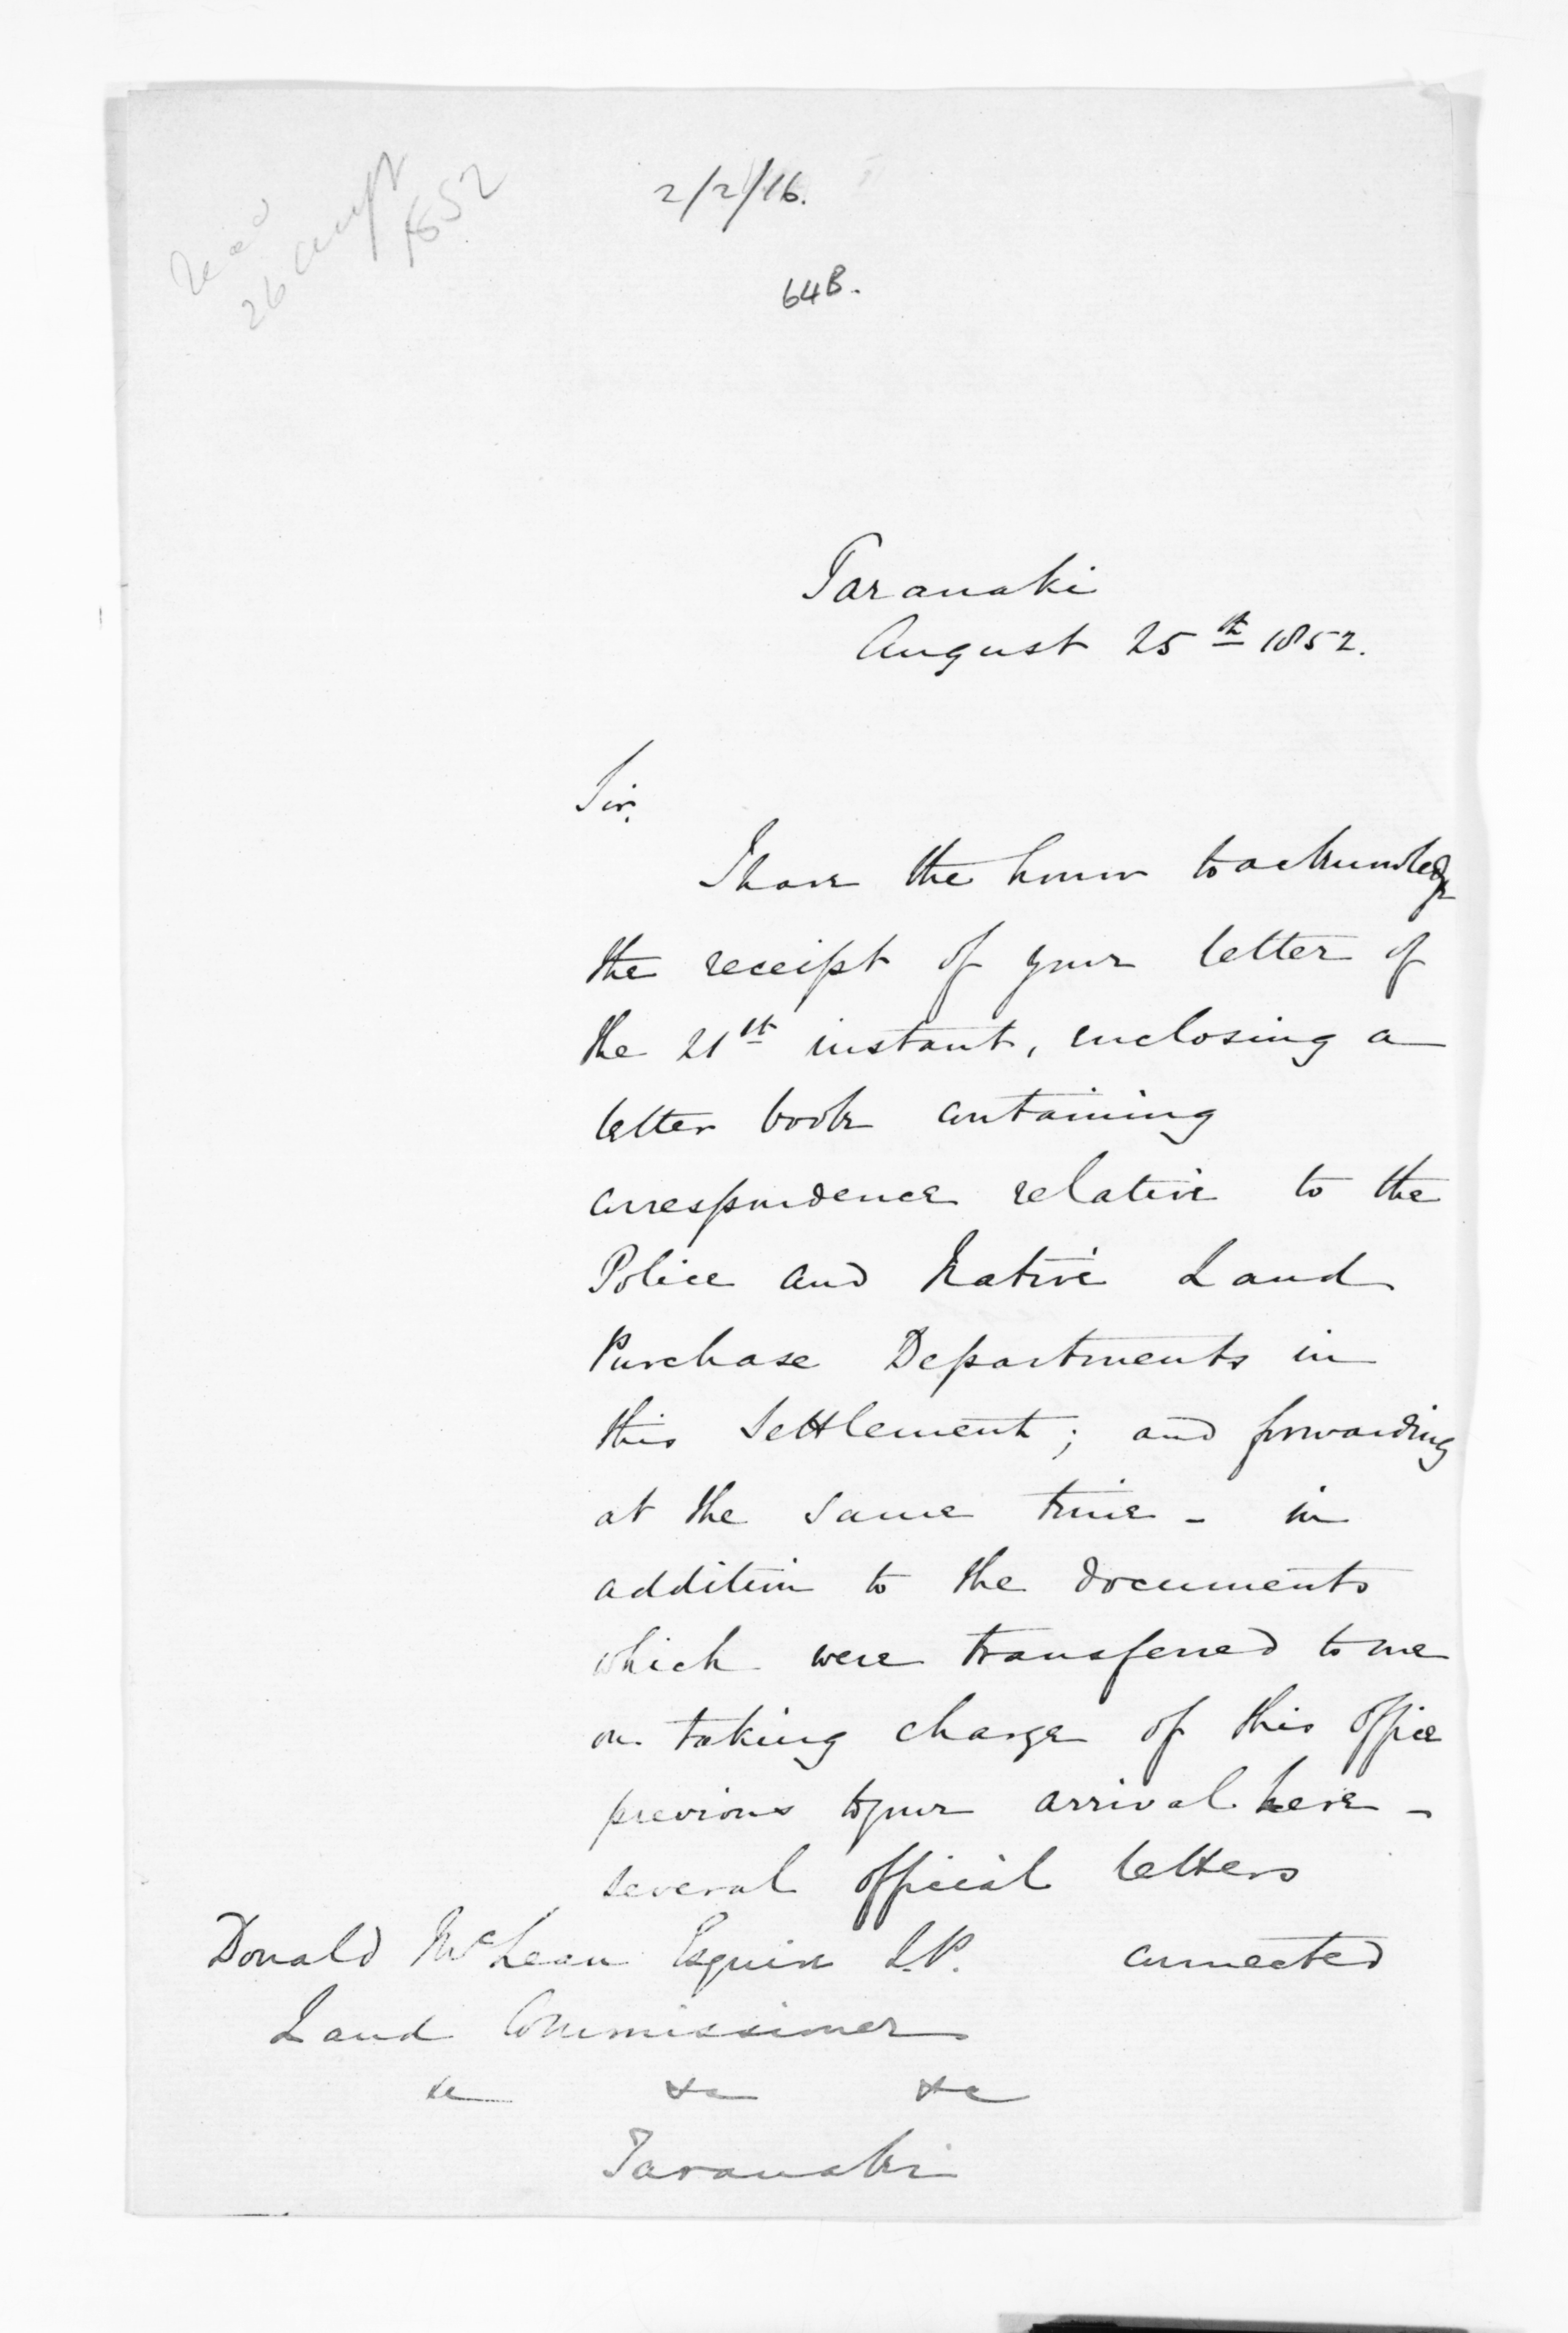 Recd
26 Augst
1852
2/2/16.
64B.
Taranaki
August 25th 1852.
Sir,
I have the honor to acknowledge
the receipt of your letter of
the 21st instant, enclosing a
letter book containing
correspondence relative to the
Police and Native Land
Purchase Departments in
this Settlement; and forwarding
at the same time - in
addition to the documents
which were transferred to me
on taking charge of this office
previous to your arrival here -
several official letters
connected
Donald McLean Esquire J.P.
Land Commissioner
&c &c &c
Taranaki